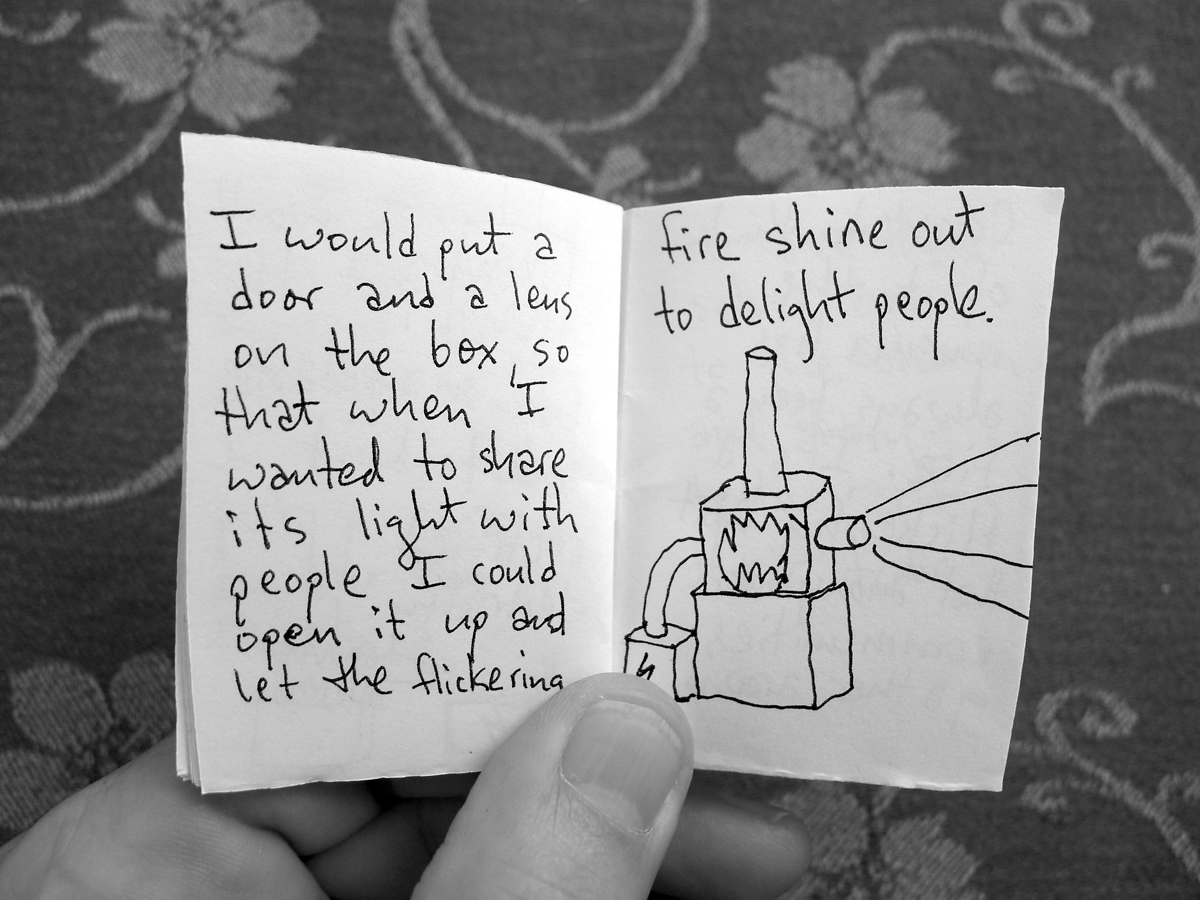 I would put a
door and a lens
on the box, so
that when I
wanted to share
its light with
people I could
open it up and
let the flickering
fire shine out
to delight people.